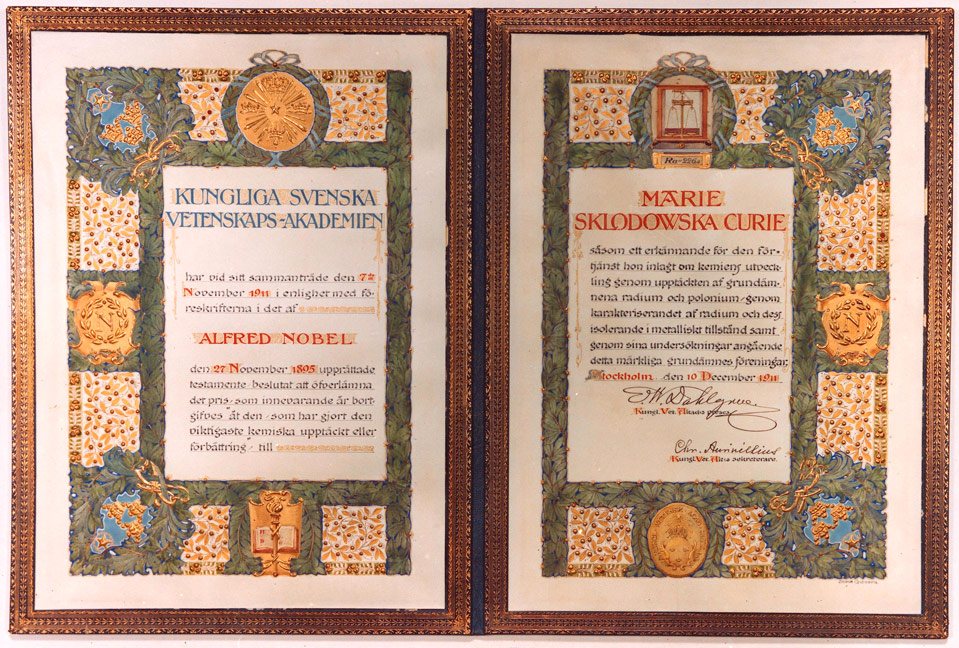 KUNGLIGA SVENSKA
VETENSKAPS-AKADEMIEN
har vid sitt sammanträde den 7de
November 1911 i enlighet med fö-
reskrifterna i det af
ALFRED NOBEL
den 27 November 1895 upprättade
testamente beslutat att öfverlämna
det pris som innevarande år bort-
gifves åt den som har gjort den
viktigaste kemiska upptäckt eller
förbättring till
Ra-226,4
MARIE
SKLODOWSKA CURIE
såsom ett erkännande för den för-
tjänst hon inlagt om kemiens utveck-
ling genom upptäckten af grundäm-
nena radium och polonium genom
karakteriserandet af radium och dess
isolerande i metalliskt tillstånd samt
genom sina undersökningar angående
detta märkliga grundämnes föreningar.
Stockholm den 10 December 1911
E.W. Dahlgren.
Kungl. Vet. Akad:s præses
Chr. Aurivillius
Kungl. Vet. Ak:s sekreterare.
N
N